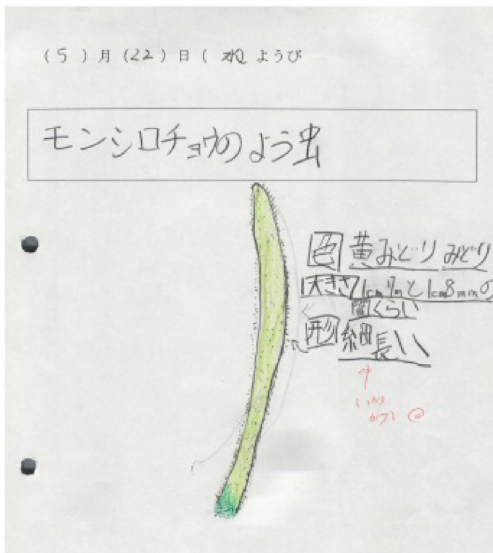 (5)月(22)日(水)ようび
モンシロチョウのよう虫
色 黄みどり みどり
大きさ 1cm7mmと1cm8mmの
間くらい
形 細長い